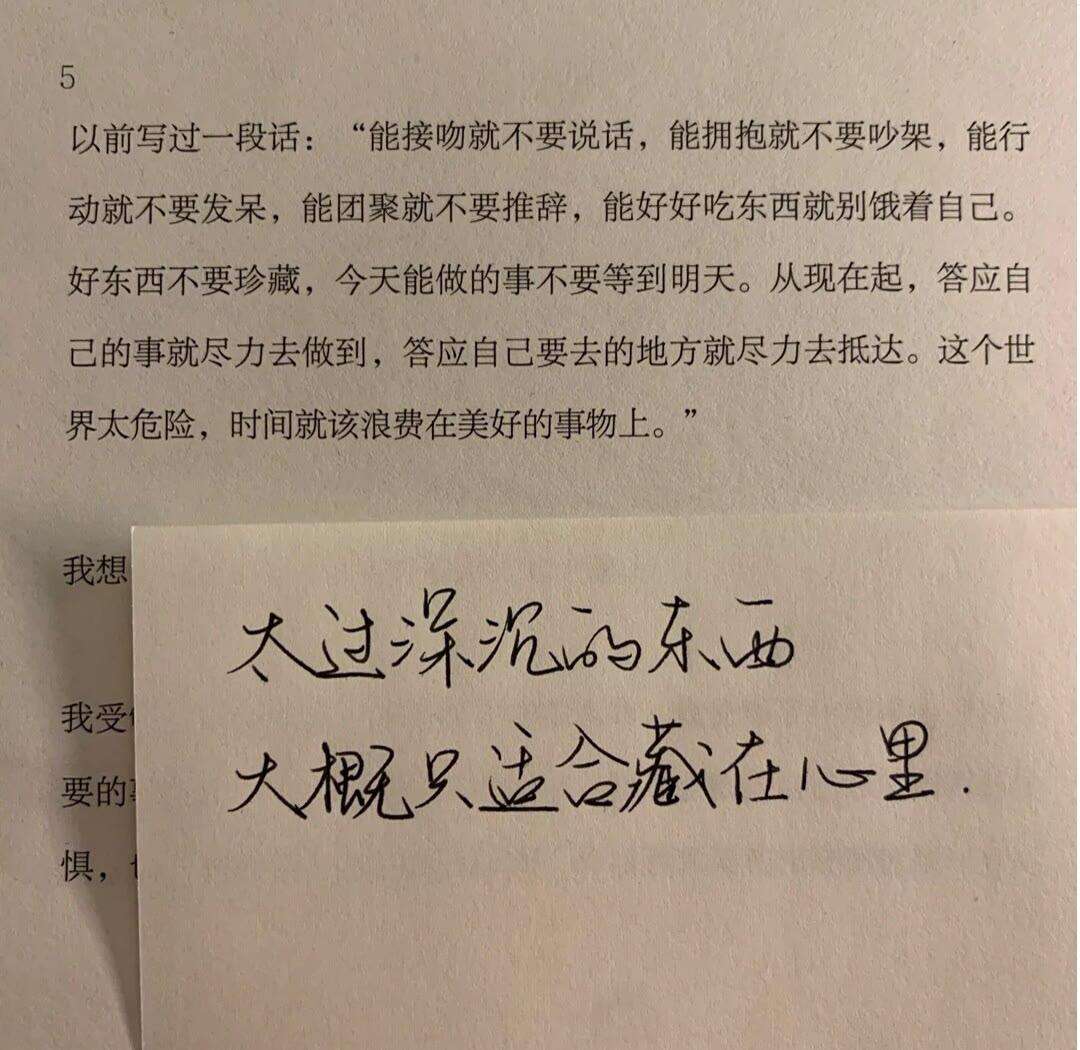 5
以前写过一段话：“能接吻就不要说话，能拥抱就不要吵架，能行
动就不要发呆，能团聚就不要推辞，能好好吃东西就别饿着自己。
好东西不要珍藏，今天能做的事不要等到明天。从现在起，答应自
己的事就尽力去做到，答应自己要去的地方就尽力去抵达。这个世
界太危险，时间就该浪费在美好的事物上。”
我想
太过深沉的东西
我受
大概只适合藏在心里.
要的
惧，